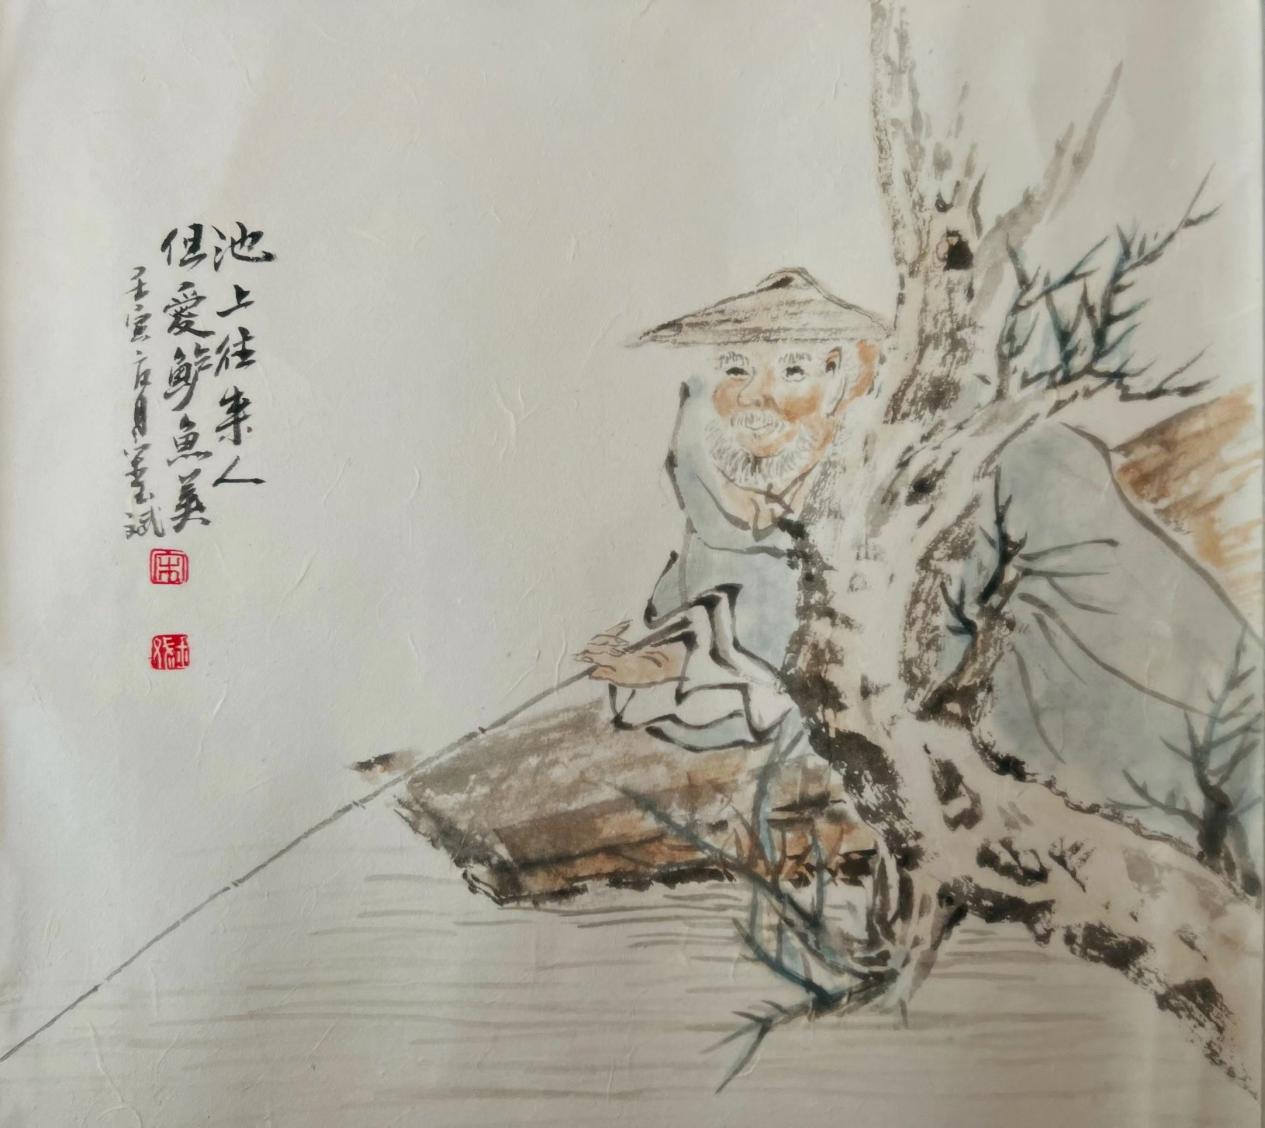 池上往来人
但愛鲈魚美
壬寅方月墨斌